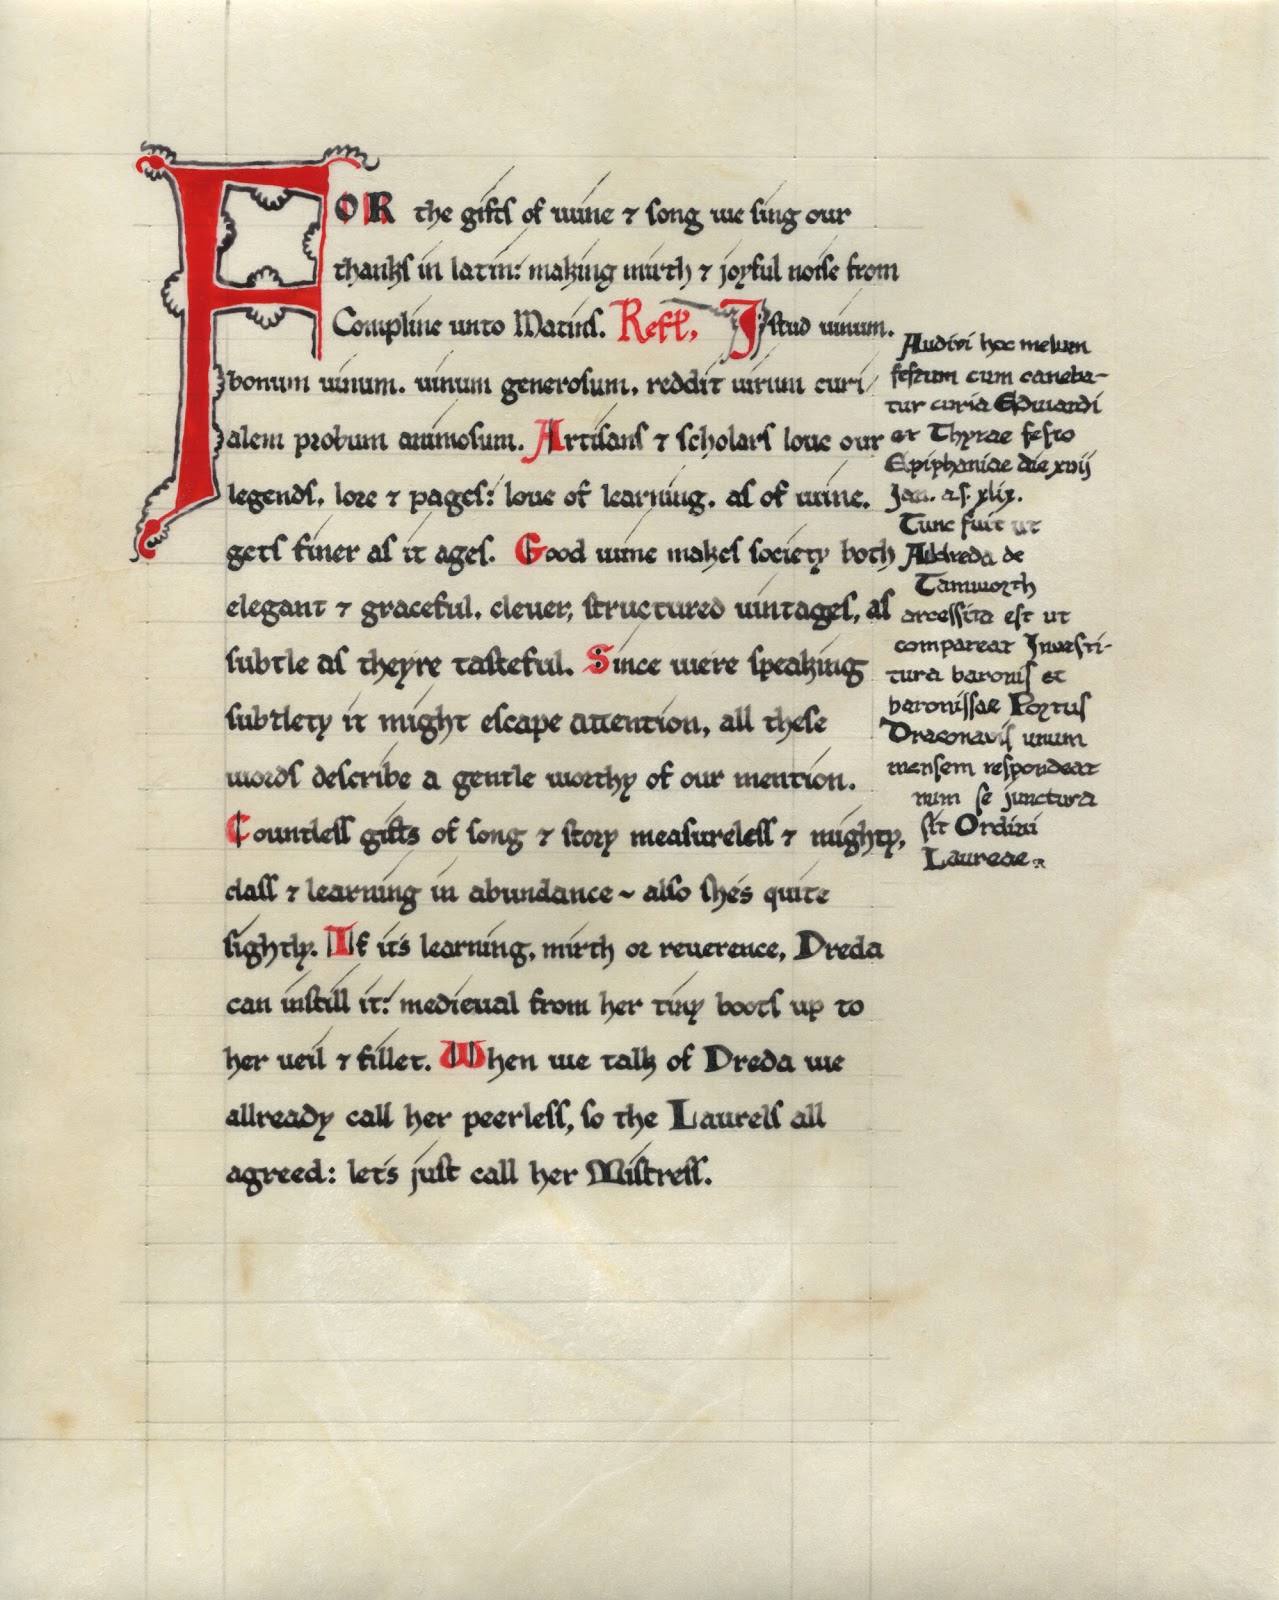 FOR the gifts of wine ⁊ song we sing our
thanks in latin: making mirth ⁊ joyful noise from
Compline unto Matins. Refr, Istud uinum.
bonum uinum. uinum generosum. reddit uirum curi
alem probum animosum. Artisans ⁊ scholars loue our
legends, lore ⁊ pages: loue of learning, as of wine,
gets finer as it ages. Good wine makes society both
elegant ⁊ graceful, cleuer, structured uintages, as
subtle as they're tasteful. Since we're speaking
subtlety it might escape attention, all these
words describe a gentle worthy of our mention.
Countless gifts of song ⁊ story measureless ⁊ mighty,
class ⁊ learning in abundance ~ also she's quite
sightly. If it's learning, mirth or reuerence, Dreda
can instill it: medieual from her tiny boots up to
her ueil ⁊ fillet. When we talk of Dreda we
allready call her peerless, so the Laurels all
agreed: let's just call her Mistress.
Audivi hoc melum
festum cum caneba-
tur curia Edwardi
et Thyrae festo
Epiphaniae die xvij
Jan. a.s. xlix.
Tunc fuit ut
Aldreda de
Tamworth
arcessita est ut
compareat Investi-
tura baronis et
baronissae Portus
Draconavis unum
mensem respondeat
num se junctura
sit Ordini
Laureae.